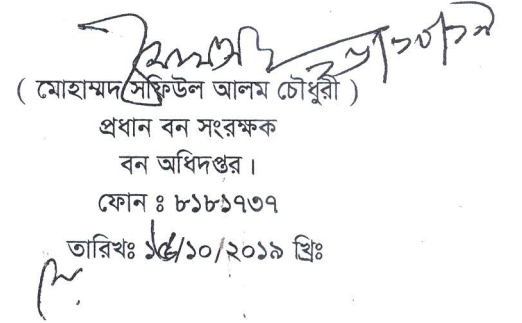 ( মোহাম্মদ সফিউল আলম চৌধুরী )
প্রধান বন সংরক্ষক
বন অধিদপ্তর ।
ফোন ঃ ৮১৮১৭৩৭
তারিখঃ ১৫/১০/২০১৯ খ্রিঃ